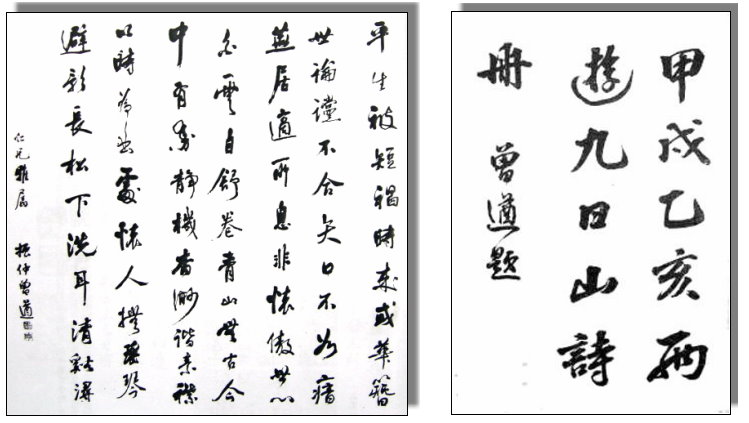 甲戌乙亥兩
遊九日山詩
冊 曾遒題
平生被短褐時來或華簪
世論讜不合矢口不為瘖
燕居適所息非懷傲世心
白雲自舒卷青山無古今
中有靜機杳渺諧素襟
以時為出處懷人撫瑤琴
避影長松下洗耳清谿潯
仁兄雅屬 振仲曾遒